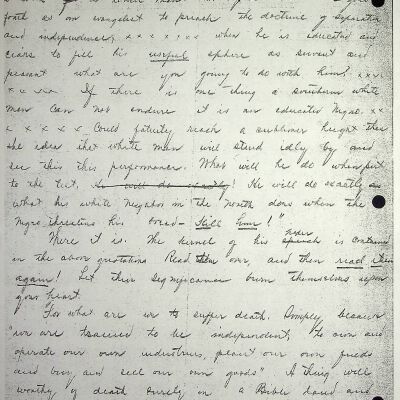 forth as an evangelist to preach the doctrine of separation
and independence, x x x x x x x when he is educated and
ceases to fill his useful sphere as servant and
peasant what are you going to do with him? x x x
x x x x If there is one thing a southern white
man can not endure it is an educated Negro. x x
x x x x x Could fatuity reach a sublimer height than
the idea that white man will stand idly by and
see this this performance. What will he do when put
to the test, He will do exactly! He will do exactly as
what his white neighbor in the North does when the
Negro threatens his bread— Kill him!"
There it is. The kernel of his speech is contained
in the above quotations Read them over, and then read them
again! Let their significance burn themselves upon
your heart.
For what are we to suffer death. Simply because
"we are trained to be independent, to own and
operate our own industries, plant our own fields
and buy and sell our own goods" A thing well
worthy of death surely in a Bible land and